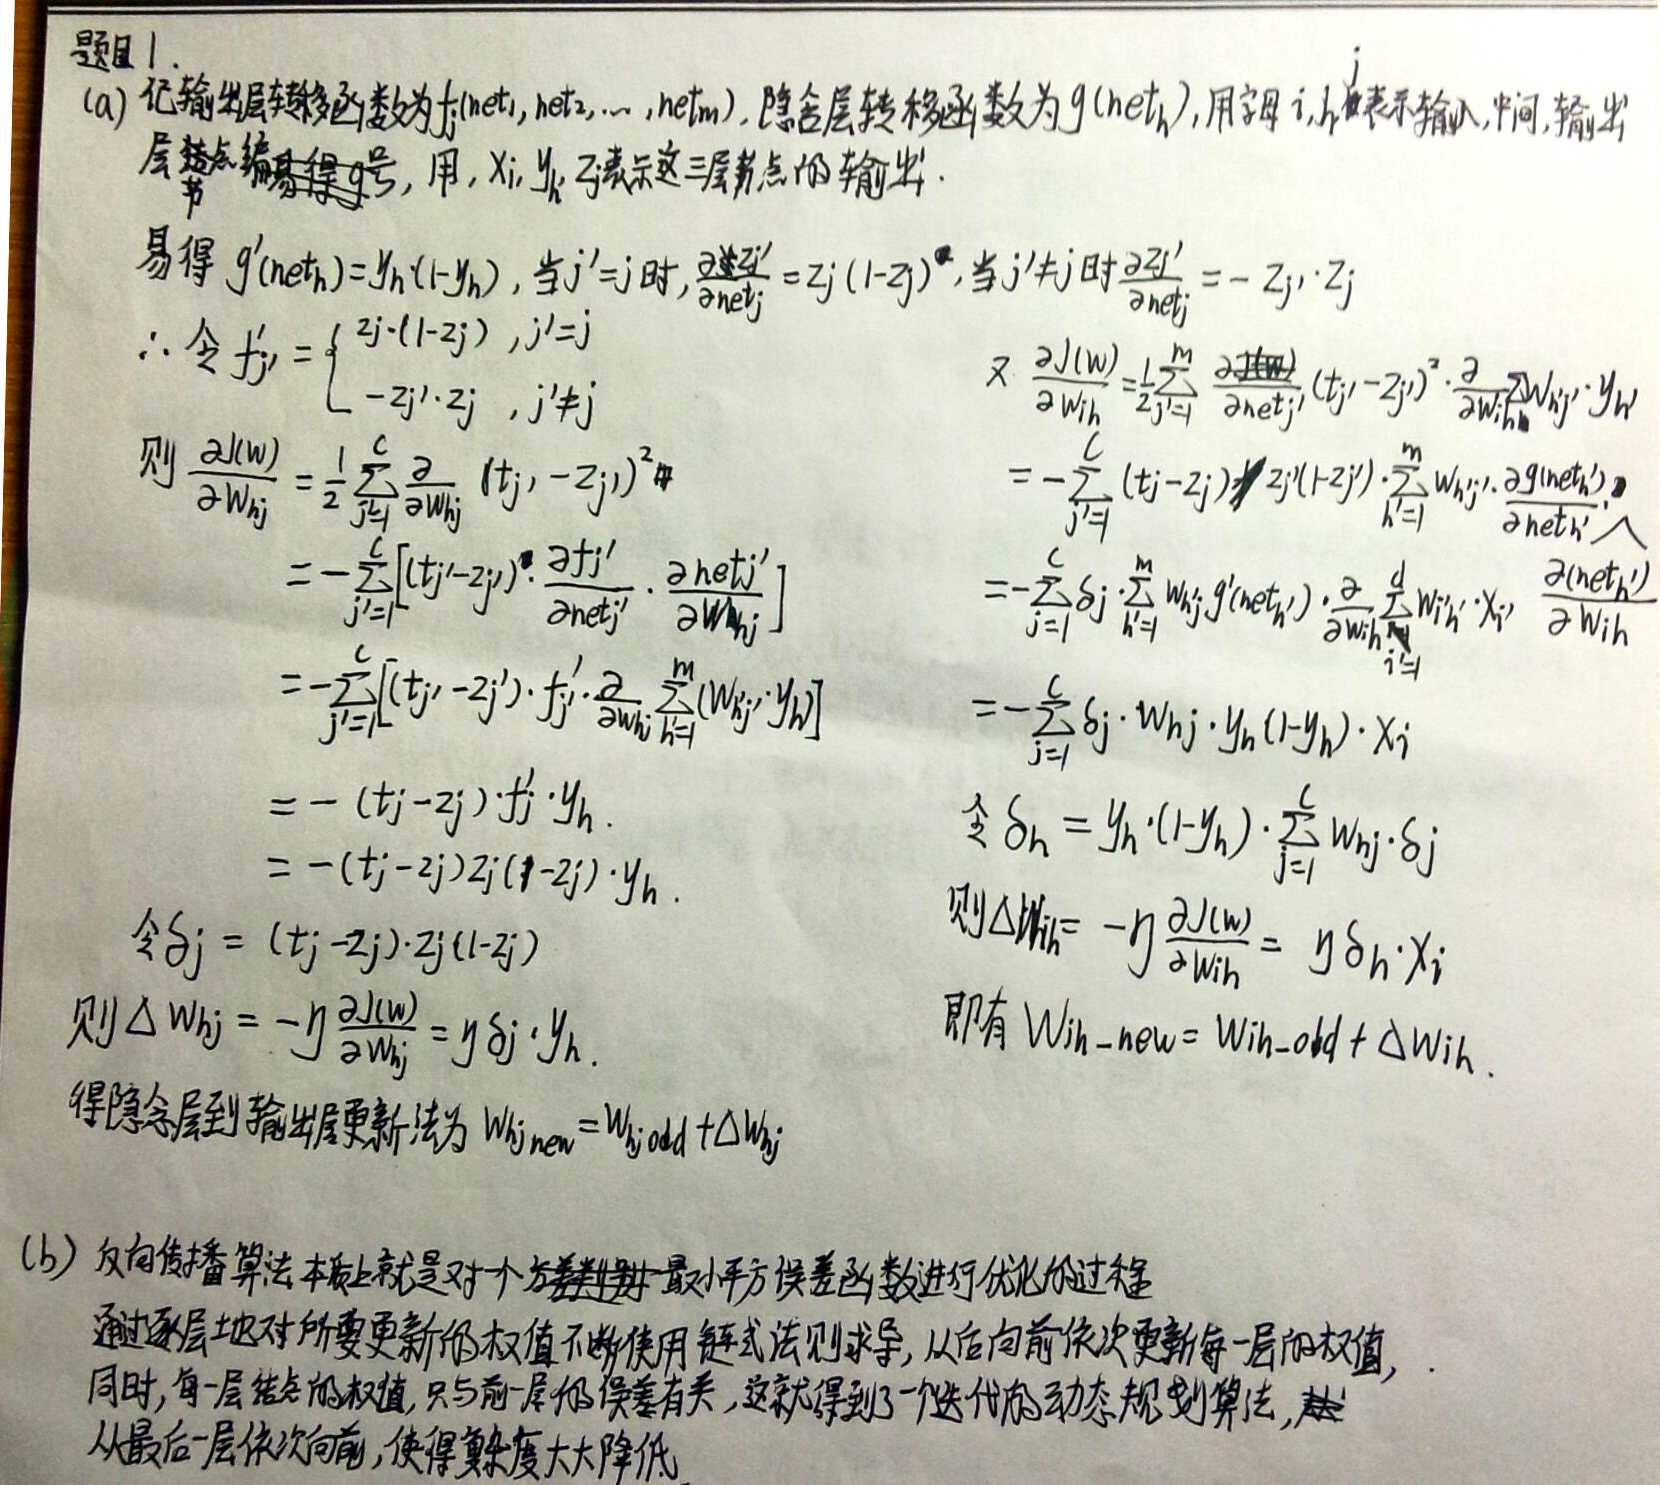 题目1.
(a) 记输出层转移函数为fj(net1, net2, ... , netm), 隐含层转移函数为g(neth), 用字母i,h,j表示输入,中间,输出
层节点编号, 用, xi, yh, zj表示这三层节点的输出.
易得 g'(neth)=yh·(1-yh), 当j'=j时, ∂zj'/∂netj = zj(1-zj), 当j'≠j时 ∂zj'/∂netj = - zj'·zj
∴ 令 f'j' = { zj·(1-zj) , j'=j
-zj'·zj , j'≠j
则 ∂J(w)/∂whj = 1/2 Σ(j'=1..c) ∂/∂whj (tj' - zj')²
= -Σ(j'=1..c) [(tj'-zj')· ∂fj'/∂netj' · ∂netj'/∂whj]
= -Σ(j'=1..c) [(tj'-zj')·f'j'·∂/∂whj Σ(h'=1..m) (wh'j'·yh)]
= - (tj-zj)·f'j·yh.
= -(tj-zj)zj(1-zj)·yh.
令δj = (tj-zj)·zj(1-zj)
则 Δwhj = -η ∂J(w)/∂whj = ηδj·yh.
得隐含层到输出层更新法为 whj new = whj odd + Δwhj
又 ∂J(w)/∂wih = 1/2 Σ(j'=1..m) ∂/∂netj' (tj'-zj')²·∂/∂wih Σ wh'j'·yh'
= -Σ(j'=1..c) (tj-zj) zj'(1-zj')·Σ(h'=1..m) wh'j'·∂g(neth')/∂neth' · ∂(neth')/∂wih
= -Σ(j=1..c) δj·Σ(h'=1..m) wh'j g'(neth')·∂/∂wih Σ(i'=1..d) wi'h'·xi'
= -Σ(j=1..c) δj·whj·yh(1-yh)·xi
令 δh = yh·(1-yh)·Σ(j=1..c) whj·δj
则Δwih = -η ∂J(w)/∂wih = ηδh·xi
即有 Wih_new = Wih_odd + ΔWih.
(b) 反向传播算法本质上就是对一个最小平方误差函数进行优化的过程
通过逐层地对所要更新的权值不断使用链式法则求导, 从后向前依次更新每一层的权值,
同时, 每一层结点的权值, 只与前一层的误差有关, 这就得到了一个迭代的动态规划算法,
从最后一层依次向前, 使得复杂度大大降低